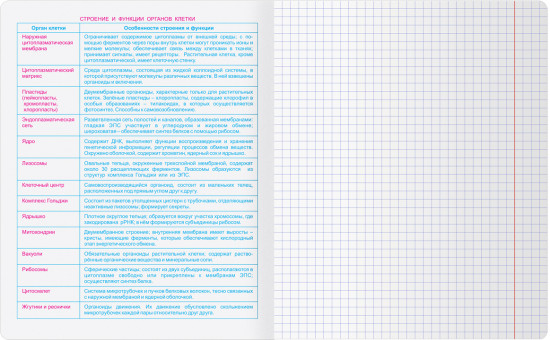 СТРОЕНИЕ И ФУНКЦИИ ОРГАНОВ КЛЕТКИ
Орган клетки
Особенности строения и функции
Наружная
цитоплазматическая
мембрана
Ограничивает содержимое цитоплазмы от внешней среды, с по-
мощью ферментов через поры внутрь клетки могут проникать ионы и
мелкие молекулы; обеспечивает связь между клетками в тканях,
принимает сигналы, имеет рецепторы. Растительная клетка, кроме
цитоплазматической, имеет клеточную стенку.
Цитоплазматический
матрикс
Среда цитоплазмы, состоящая из жидкой коллоидной системы, в
которой присутствуют молекулы различных веществ. В ней взвешены
органоиды и включения.
Пластиды
(лейкопласты,
хромопласты,
хлоропласты)
Двумембранные органоиды, характерные только для растительных
клеток. Зелёные пластиды – хлоропласты, содержащие хлорофилл в
особых образованиях – тилакоидах, в которых осуществляется
фотосинтез. Способны к самовозобновлению.
Эндоплазматическая
сеть
Разветвленная сеть полостей и каналов, образованная мембранами:
гладкая ЭПС участвует в углеродном и жировом обмене,
шероховатая – обеспечивает синтез белков с помощью рибосом.
Ядро
Содержит ДНК, выполняет функции воспроизведения и хранения
генетической информации, регуляции процессов обмена веществ.
Окружено оболочкой, содержит хроматин, ядерный сок и ядрышко.
Лизосомы
Овальные тельца, окруженные трехслойной мембраной, содержат
около 30 расщепляющих ферментов. Лизосомы образуются из
структур комплекса Гольджи или из ЭПС.
Клеточный центр
Самовоспроизводящийся органоид, состоит из маленьких телец,
расположенных под прямым углом друг к другу.
Комплекс Гольджи
Состоит из пакетов уплощенных цистерн с трубочками, отделяющими
неактивные лизосомы; формирует секреты.
Ядрышко
Плотное округлое тельце; образуется вокруг участка хромосомы, где
закодирована рРНК; в нём формируются субъединицы рибосом.
Митохондрии
Двумембранное строение; внутренняя мембрана имеет выросты –
кристы, имеющие ферменты, которые обеспечивают кислородный
этап энергетического обмена.
Вакуоли
Обязательные органоиды растительной клетки; содержат раство-
рённые органические вещества и минеральные соли.
Рибосомы
Сферические частицы; состоят из двух субъединиц, располагаются в
цитоплазме свободно или прикреплены к мембранам ЭПС;
осуществляют синтез белка.
Цитоскелет
Система микротрубочек и пучков белковых волокон, тесно связанных
с наружной мембраной и ядерной оболочкой.
Жгутики и реснички
Органоиды движения. Их движение обусловлено скольжением
микротрубочек каждой пары относительно друг друга.